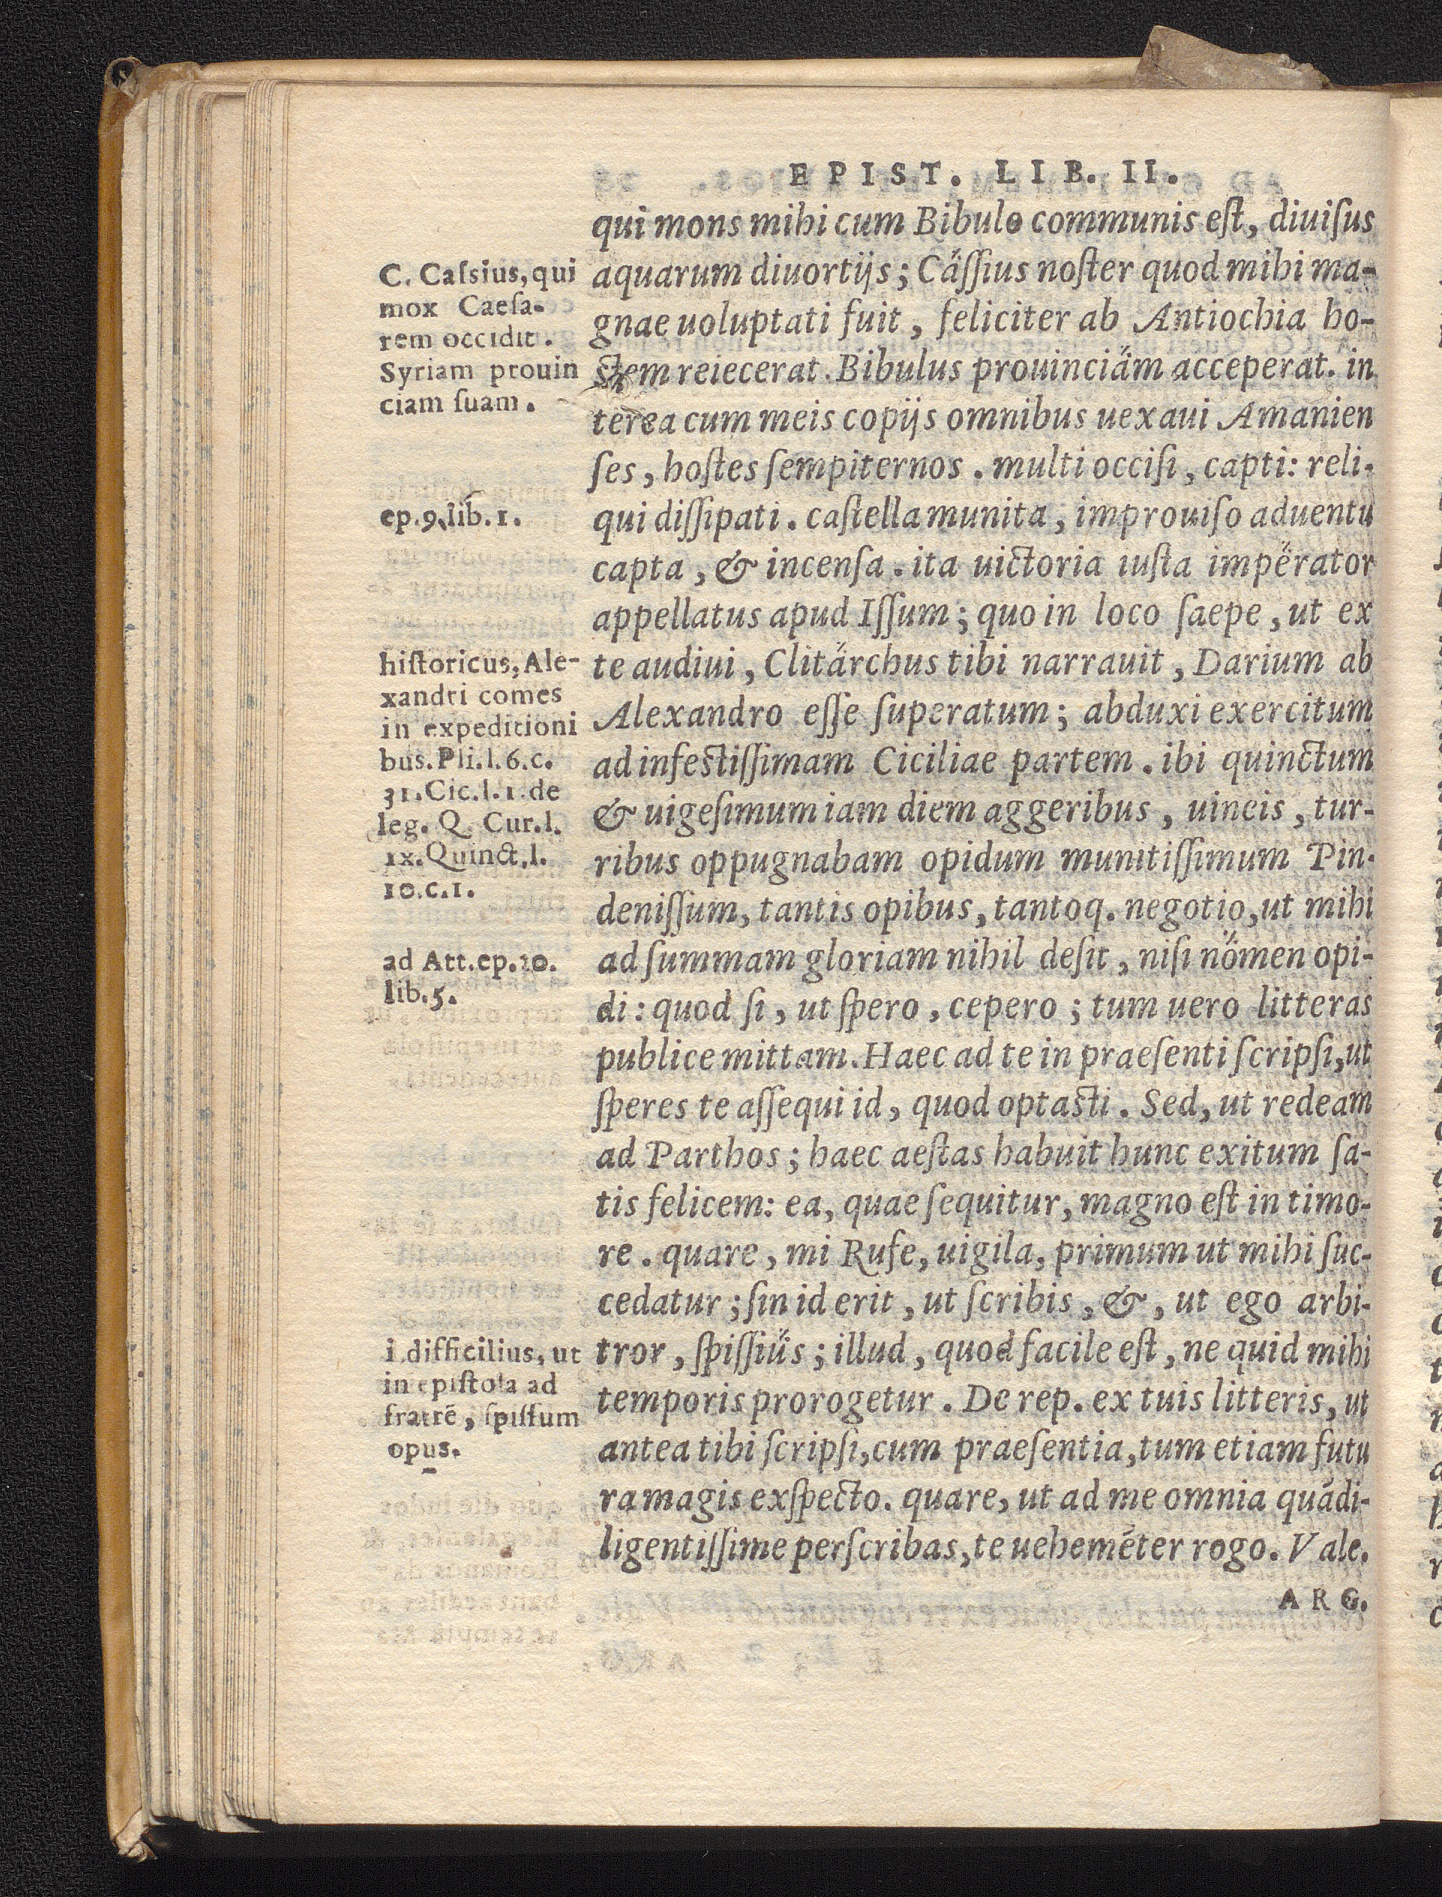 EPIST. LIB. II.
qui mons mihi cum Bibulo communis est, diuisus
aquarum diuortijs; Cässius noster quod mihi ma-
gnae uoluptati fuit, feliciter ab Antiochia ho-
stem reiecerat. Bibulus prouinciäm acceperat. in
terea cum meis copijs omnibus uexaui Amanien
ses, hostes sempiternos. multi occisi, capti: reli-
qui dissipati. castella munita, improuiso aduentu
capta, & incensa. ita uictoria iusta impërator
appellatus apud Issum; quo in loco saepe, ut ex
te audiui, Clitärchus tibi narrauit, Darium ab
Alexandro esse superatum; abduxi exercitum
ad infestissimam Ciciliae partem. ibi quinctum
& uigesimum iam diem aggeribus, uineis, tur-
ribus oppugnabam opidum munitissimum Pin-
denissum, tantis opibus, tantoq. negotio, ut mihi
ad summam gloriam nihil desit, nisi nömen opi-
di: quod si, ut spero, cepero; tum uero litteras
publice mittam. Haec ad te in praesenti scripsi, ut
speres te assequi id, quod optasti. Sed, ut redeam
ad Parthos; haec aestas habuit hunc exitum sa-
tis felicem: ea, quae sequitur, magno est in timo-
re. quare, mi Rufe, uigila, primum ut mihi suc-
cedatur; sin id erit, ut scribis, &, ut ego arbi-
tror, spissiüs; illud, quod facile est, ne quid mihi
temporis prorogetur. De rep. ex tuis litteris, ut
antea tibi scripsi, cum praesentia, tum etiam futu
ra magis exspecto. quare, ut ad me omnia quàdi-
ligentissime perscribas, te uehemẽter rogo. Vale.
ARG.
C. Cassius, qui
mox Caesa-
rem occidit.
Syriam prouin
ciam suam.
ep.9.lib.1.
historicus, Ale-
xandri comes
in expeditioni
bus. Pli.l.6.c.
31. Cic.l.1.de
leg. Q. Cur.l.
ix. Quinct.l.
10.c.1.
ad Att.ep.20.
lib.5.
i.difficilius, ut
in epistola ad
fratrẽ, spissum
opus.